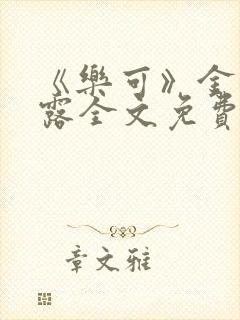 《樂可》金
露全文免費
章文雅